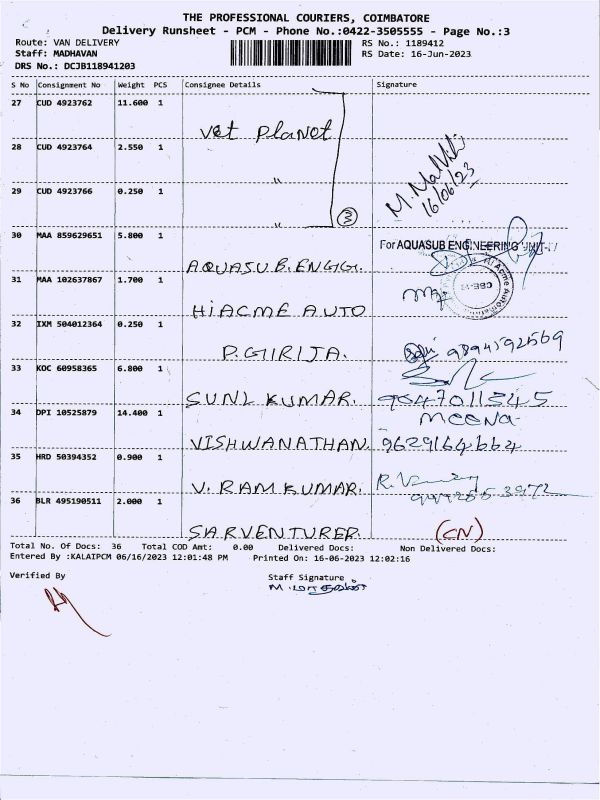 THE PROFESSIONAL COURIERS, COIMBATORE
Delivery Runsheet - PCM - Phone No.:0422-3505555 - Page No.:3
Route: VAN DELIVERY RS No.: 1189412
Staff: MADHAVAN RS Date: 16-Jun-2023
DRS No.: DCJB118941203
S No Consignment No Weight PCS Consignee Details Signature
27 CUD 4923762 11.600 1
Vet Planet
28 CUD 4923764 2.550 1
"
M. Malathi
16/06/23
29 CUD 4923766 0.250 1
" 3
30 MAA 859629651 5.800 1 For AQUASUB ENGINEERING UNIT-
AQUASUB.ENGG.
31 MAA 102637867 1.700 1
HIACME AUTO
32 IXM 504012364 0.250 1
P.GIRIJA. 9894592569
33 KOC 60958365 6.800 1
SUNL KUMAR. 9047011345
34 DPI 10525879 14.400 1 MEENA
VISHWANATHAN. 9629164664
35 HRD 50394352 0.900 1
V. RAMKUMAR.
36 BLR 495190511 2.000 1
SARVENTURER. (CN)
Total No. Of Docs: 36 Total COD Amt: 0.00 Delivered Docs: Non Delivered Docs:
Entered By :KALAIPCM 06/16/2023 12:01:48 PM Printed On: 16-06-2023 12:02:16
Verified By Staff Signature
M. மாதவன்